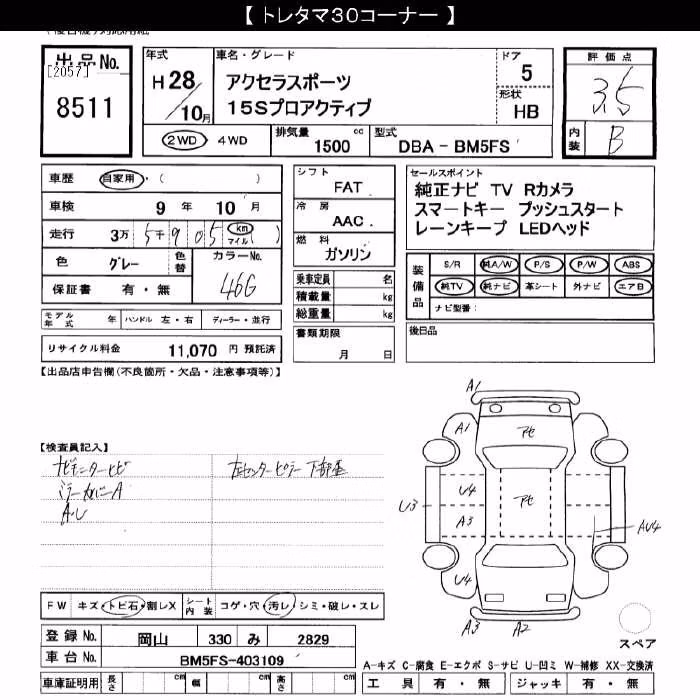 【 トレタマ30コーナー 】
出品 No. [2057] 8511
年式 H 28 / 10 月
車名・グレード アクセラスポーツ
15Sプロアクティブ
ドア 5
形状 HB
評価点 3.5
内装 B
2WD ・ 4WD 排気量 1500 cc 型式 DBA - BM5FS
車歴 自家用 ・ ( )
車検 9 年 10 月
走行 3万 5千 9 0 5 km マイル ( )
色 グレー 色替 カラーNo. 46G
保証書 有 ・ 無
モデル年式 年 ハンドル 左・右 ディーラー・並行
リサイクル料金 11,070 円 預託済
シフト FAT
冷房 AAC
燃料 ガソリン
乗車定員 名
積載量 kg
総重量 kg
書類期限 月 日
セールスポイント
純正ナビ TV Rカメラ
スマートキー プッシュスタート
レーンキープ LEDヘッド
装備品 S/R 純A/W P/S P/W ABS
純TV 純ナビ 革シート 外ナビ エアB
ナビ型番:
後日品
【出品店申告欄(不良箇所・欠品・注意事項等)】
【検査員記入】
ミラーカバーA
A・U
左センターピラー下部歪
A1
A1
アセ
U4
U3
A3
アセ
AU4
U4
A3 A2
スペア
FW キズ・トビ石・割レX シート内装 コゲ・穴・汚レ・シミ・破レ・スレ
登録 No. 岡山 330 み 2829
車台 No. BM5FS-403109
車庫証明用 長さ cm 幅 cm 高さ cm
A-キズ C-腐食 E-エクボ S-サビ U-凹ミ W-補修 XX-交換済
工具 有 ・ 無 ジャッキ 有 ・ 無